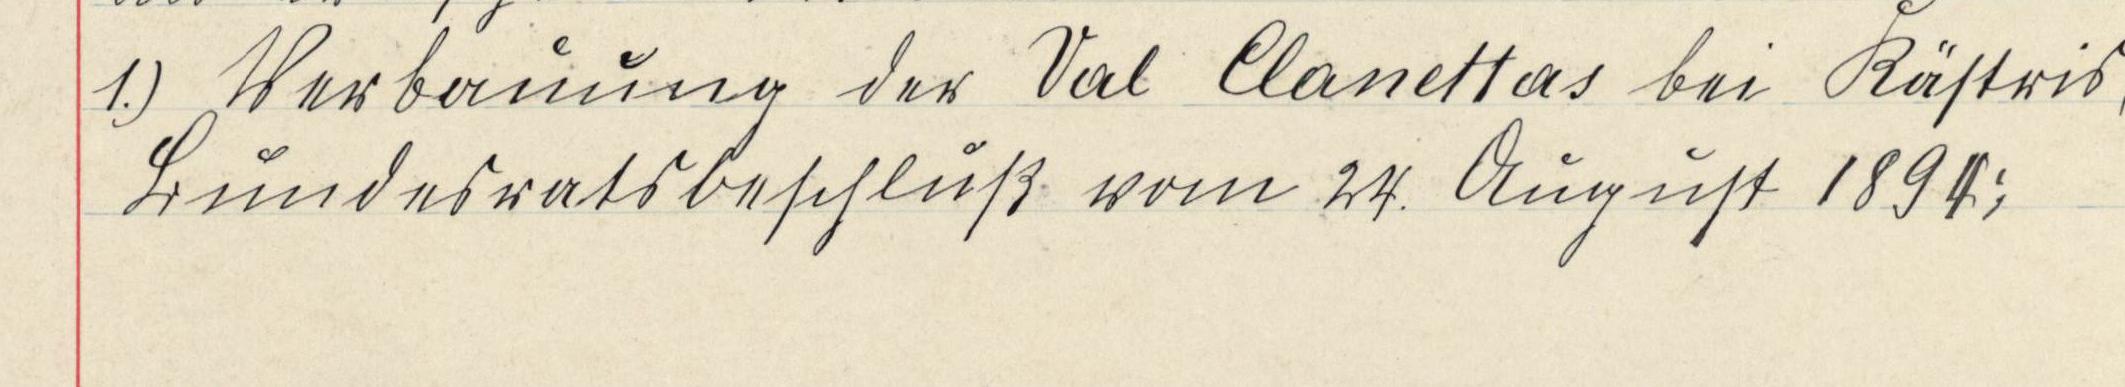 1.) Verbauung der Val Clanettas bei Kästris,
Bundesratsbeschluß vom 24. August 1894;